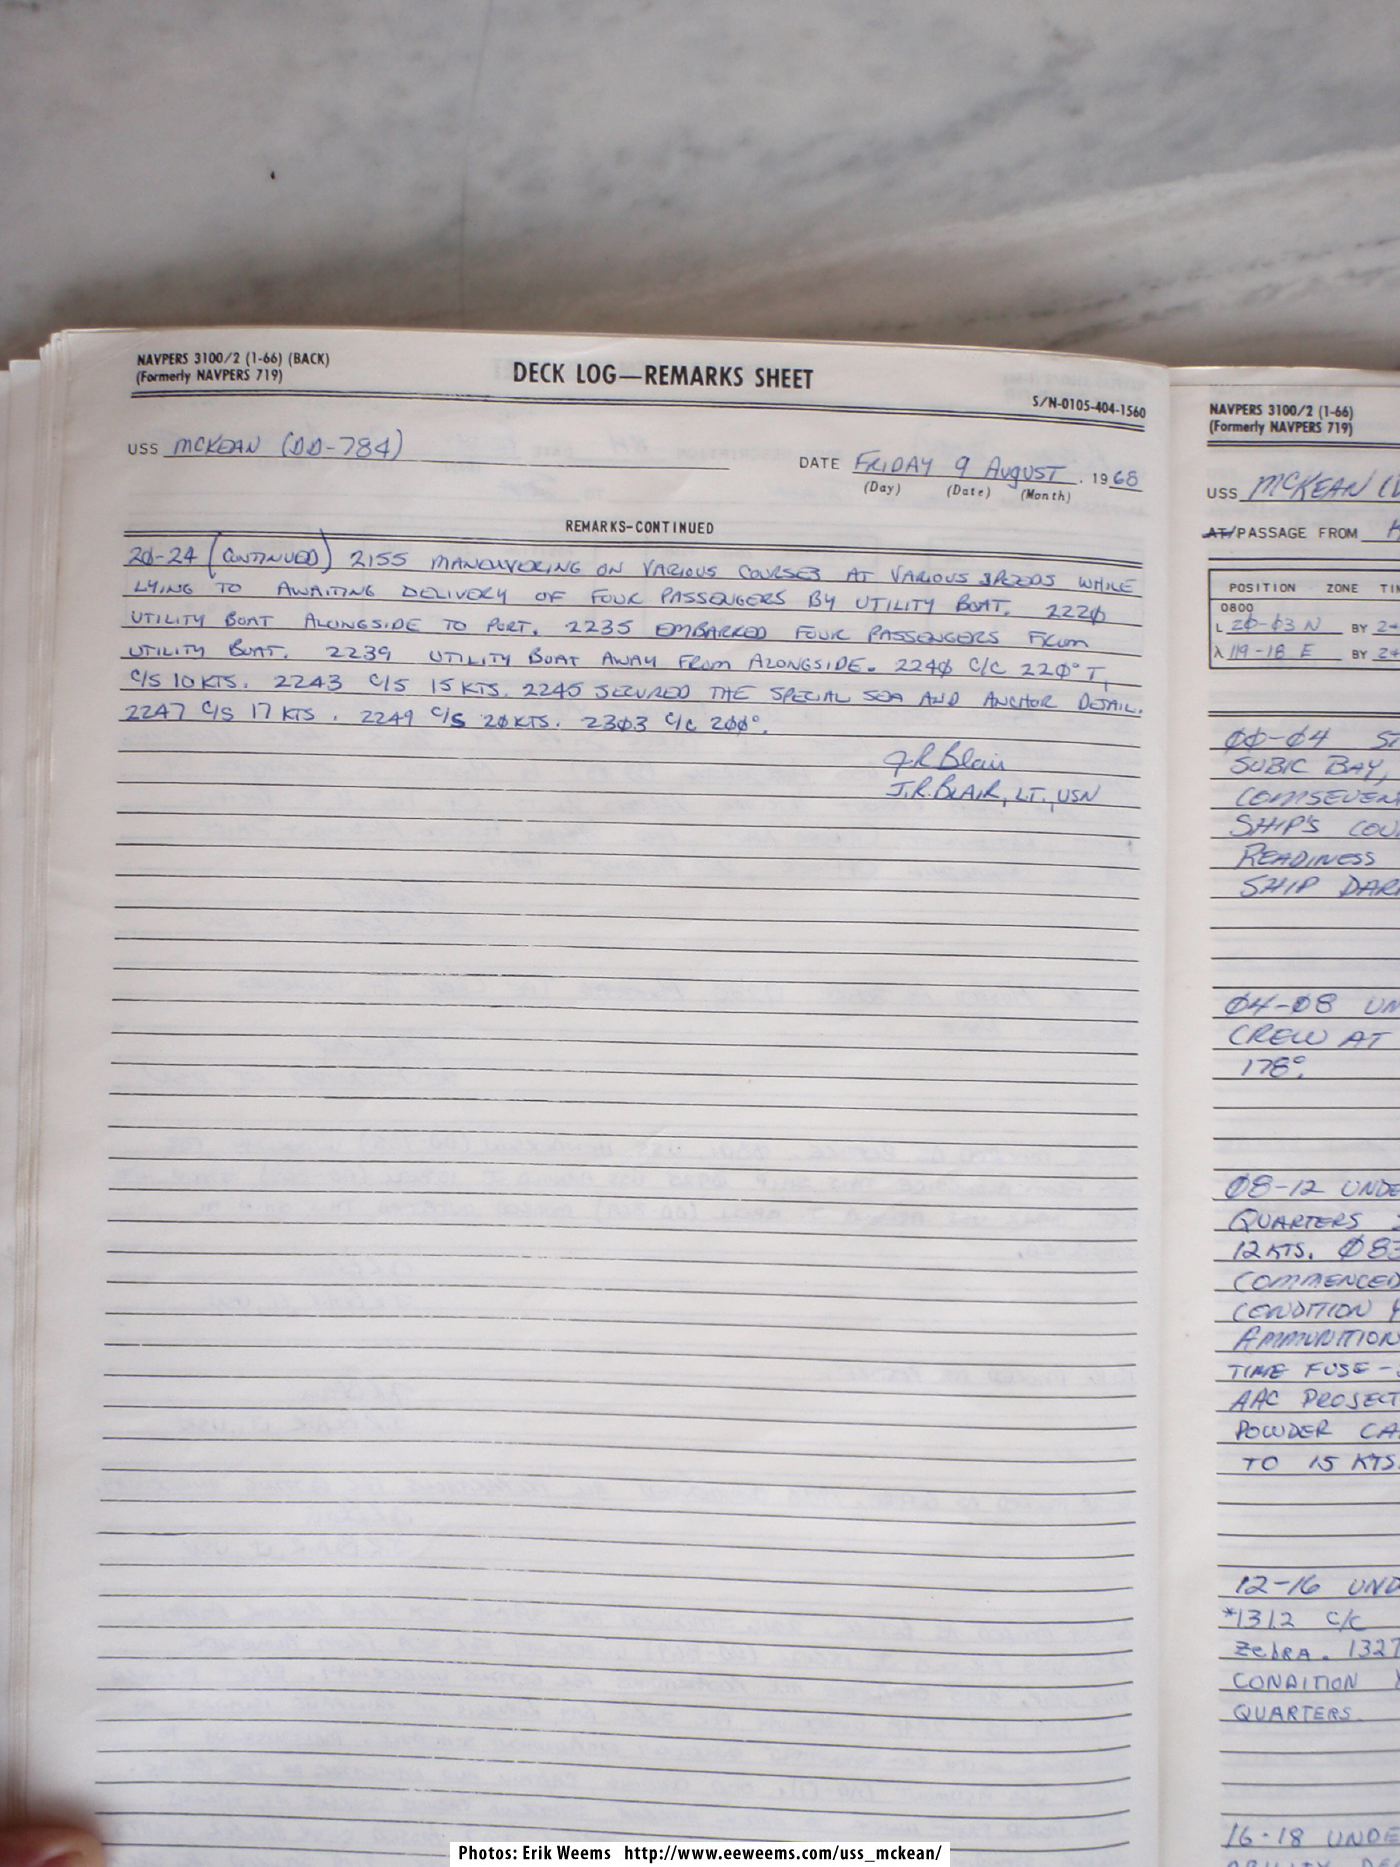 NAVPERS 3100/2 (1-66) (BACK)
(Formerly NAVPERS 719)
DECK LOG—REMARKS SHEET
S/N-0105-404-1560
USS MCKEAN (DD-784)
DATE FRIDAY 9 AUGUST, 1968
(Day) (Date) (Month)
REMARKS-CONTINUED
20-24 (CONTINUED) 2155 MANEUVERING ON VARIOUS COURSES AT VARIOUS SPEEDS WHILE
LYING TO AWAITING DELIVERY OF FOUR PASSENGERS BY UTILITY BOAT. 2220
UTILITY BOAT ALONGSIDE TO PORT. 2235 EMBARKED FOUR PASSENGERS FROM
UTILITY BOAT. 2239 UTILITY BOAT AWAY FROM ALONGSIDE. 2240 C/C 220° T,
C/S 10 KTS. 2243 C/S 15 KTS. 2245 SECURED THE SPECIAL SEA AND ANCHOR DETAIL.
2247 C/S 17 KTS. 2249 C/S 20 KTS. 2303 C/C 200°.
J.R. Blair
J.R. BLAIR, LT., USN
NAVPERS 3100/2 (1-66)
(Formerly NAVPERS 719)
USS MCKEAN
AT/PASSAGE FROM
POSITION ZONE
0800
L 20-03 N BY
λ 119-18 E BY
00-04
SUBIC BAY,
SHIP'S
READINESS
SHIP
04-08
CREW AT
178°.
08-12
QUARTERS
12 KTS.
COMMENCED
CONDITION
AMMUNITION
TIME FUSE-
AAC
POWDER
TO 15 KTS.
12-16
*1312 C/C
ZEBRA. 1327
CONDITION
QUARTERS.
16-18
Photos: Erik Weems http://www.eeweems.com/uss_mckean/